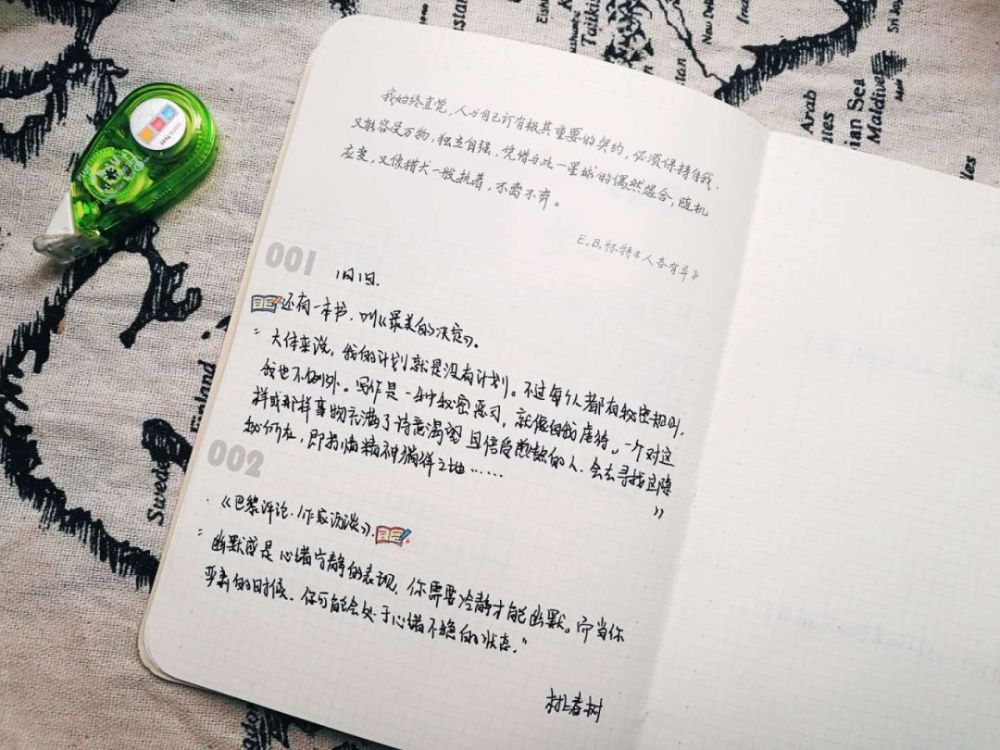 我始终直觉,人与自己订有极其重要的契约,必须保持自我,
又能容受万物,独立自强,凭借与此一星球的偶然遇合,随机
应变,又像猎犬一般执着,不离不弃。
E.B.怀特《人各有异》
001
1日1日.
还有一本书,叫《最美的决定》。
"大体来说,我的计划就是没有计划。不过每个人都有秘密规则,
我也不例外。写作是一种秘密恶习,就像自我虐待。一个对这
样或那样事物充满了诗意渴望且倍受煎熬的人,会去寻找这隐
秘所在,即苦恼精神徜徉之地……"
002
《巴黎评论·作家访谈》.
"幽默感是心绪宁静的表现,你需要冷静才能幽默。而当你
严肃的时候,你可能会处于心绪不稳的状态。"
村上春树
Finland
Swede
Taiki
New Del
Arab
ian Sea
Maldive
Sri